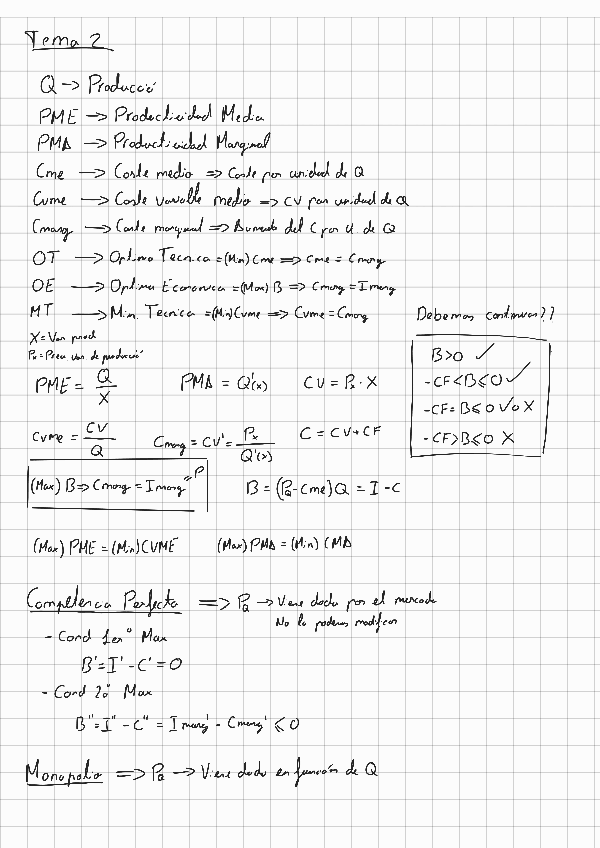 Tema 2
Q → Producció
PME → Productividad Media
PMA → Productividad Marginal
Cme → Coste medio ⇒ Coste por unidad de Q
Cvme → Coste variable medio ⇒ CV por unidad de Q
Cmarg → Coste marginal ⇒ Aumento del C por u. de Q
OT → Optimo Tecnica = (Min) Cme ⇒ Cme = Cmarg
OE → Optima Economica = (Max) B ⇒ Cmarg = Imarg
MT → Min. Tecnica = (Min) Cvme ⇒ Cvme = Cmarg
Debemos continuar??
X = Var prod
Px = Preu var de producció
B>0 ✓
-CF<B≤0 ✓
-CF=B≤0 ✓o X
-CF>B≤0 X
PME = Q/X PMA = Q'(x) CV = Px · X
Cvme = CV/Q Cmarg = CV' = Px/Q'(x) C = CV+CF
(Max) B ⇒ Cmarg = Imarg = P B = (PQ - Cme)Q = I - C
(Max) PME = (Min) CVME (Max) PMA = (Min) CMA
Competencia Perfecta ⇒ PQ → Viene dado por el mercado
No lo podemos modificar
- Cond 1erº Max
B' = I' - C' = 0
- Cond 2º Max
B'' = I'' - C'' = Imarg' - Cmarg' ≤ 0
Monopolio ⇒ PQ → Viene dado en función de Q